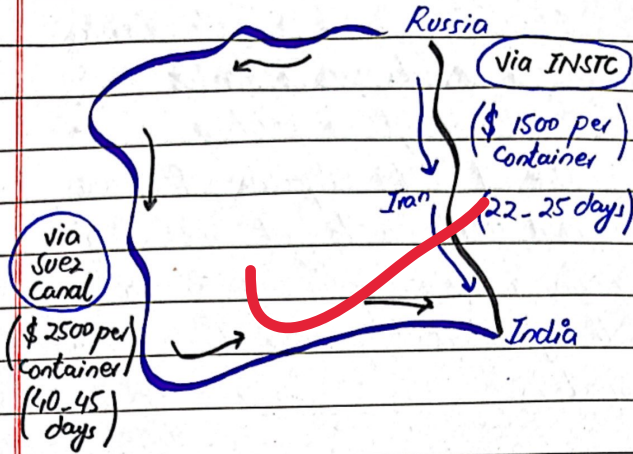 Russia
via INSTC
($ 1500 per
container)
Iran
(22-25 days)
via
Suez
Canal
($ 2500 per
container)
(40-45
days)
India